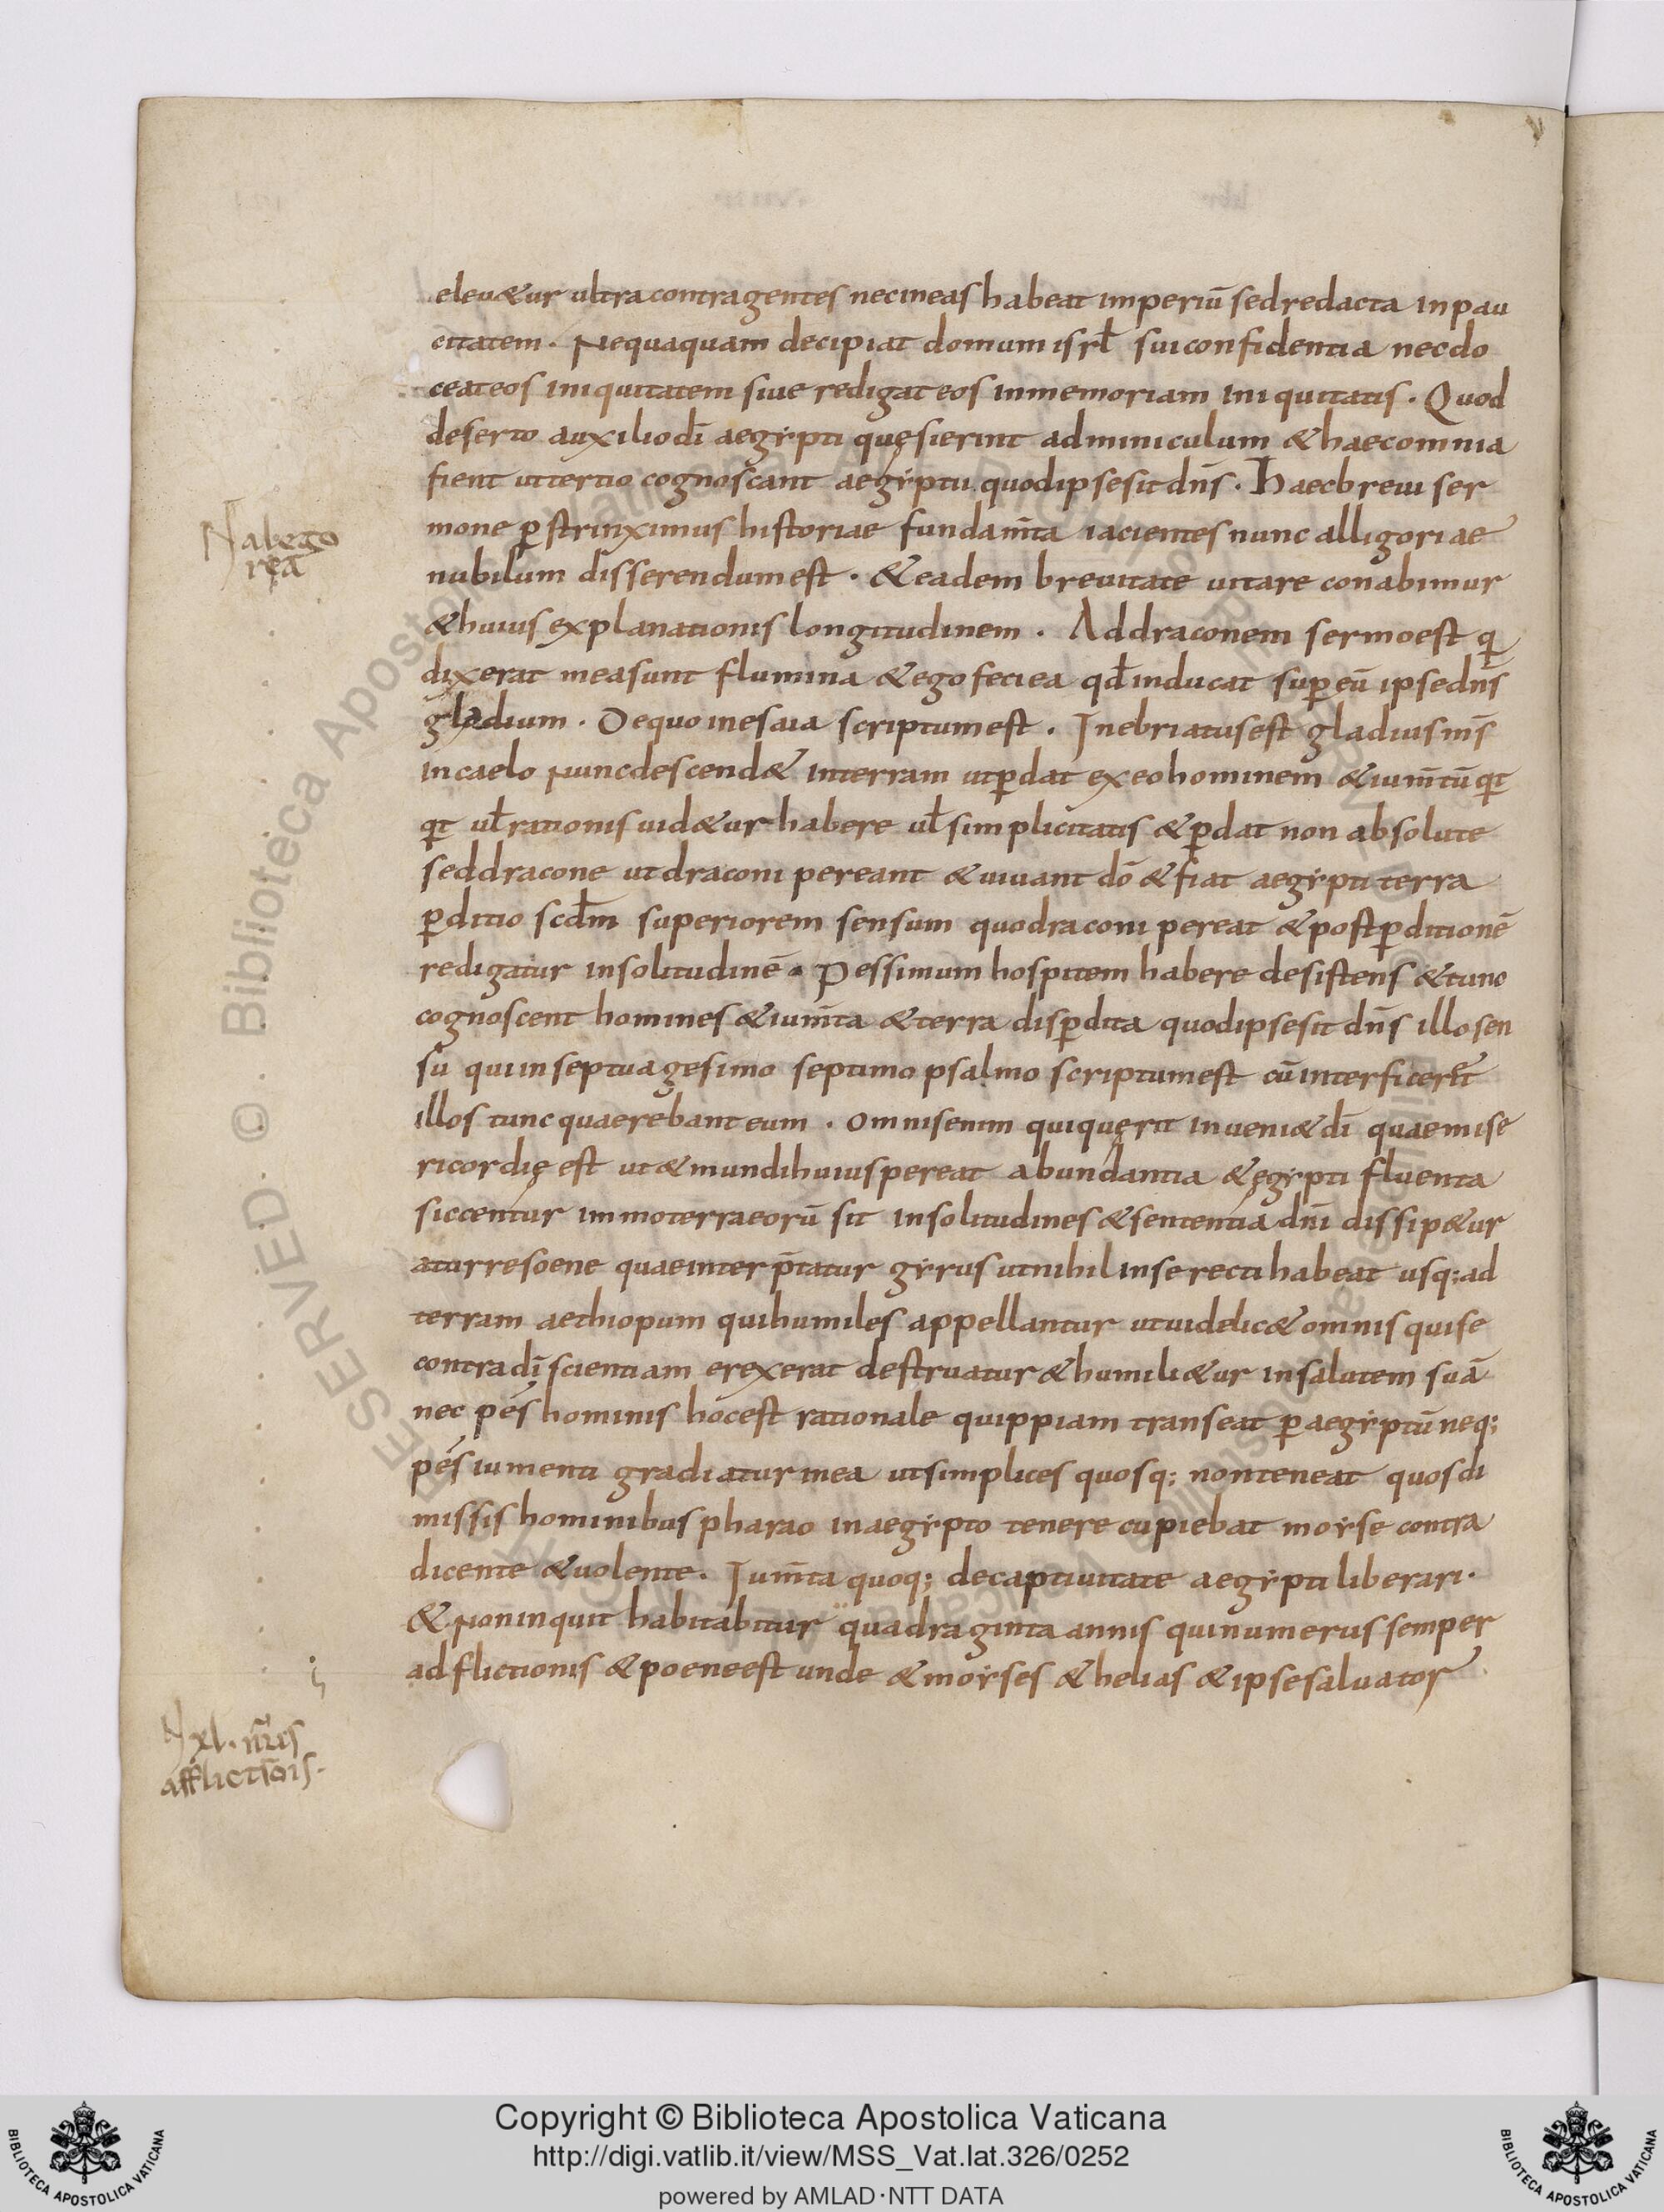 eleu&ur ultra contra gentes nec in eas habeat imperiū sed redacta in pau
citatem. Nequaquam decipiat domum isrł sui confidentia nec do
ceat eos iniquitatem siue redigat eos in memoriam iniquitatis. Quod
deserto auxilio dī aegẏpti quęsierint adminiculum & haec omnia
fient ut tertio cognoscant aegẏptii quod ipse sit dn̄s. Haec breui ser
mone p̱strinximus historiae fundam̄ta iacientes nunc alligoriae
nubilum disserendum est. & eadem breuitate uitare conabimur
& huius explanationis longitudinem. Ad draconem sermo est q
dixerat mea sunt flumina & ego feci ea qđ inducat sup̱ eū ipse dn̄s
gladium. De quo in esaia scriptum est. Inebriatus est gladius m̄s
in caelo nunc descend& in terram ut p̱dat ex eo hominem & ium̄tū qt
qt uł rationis uid&ur habere uł simplicitatis & p̱dat non absolute
sed dracone ut draconi pereant & uiuant dō & fiat aegẏpti terra
p̱ditio scdm̄ superiorem sensum quo draconi pereat & post p̱ditionē
redigatur in solitudinē. Pessimum hospitem habere desistens & tunc
cognoscent homines & ium̄ta & terra disp̱dita quod ipse sit dn̄s illo sen
su qui in septuagesimo septimo psalmo scriptum est cū interficeret
illos tunc quaerebant eum. Omnis enim qui quęrit inueni& dī quae mise
ricordię est ut & mundi huius pereat abundantia & ęgẏpti fluenta
siccentur immo terra eorū sit in solitudines & sententia dn̄i dissip&ur
a turre soene quae interp̄tatur gẏrus ut nihil in se recti habeat usq; ad
terram aethiopum qui humiles appellantur ut uidelic& omnis qui se
contra dī scientiam erexerat destruatur & humili&ur in salutem suā
nec pes hominis hoc est rationale quippiam transeat p̱ aegẏptū neq;
pes iumenti gradiatur in ea ut simplices quosq; non teneat quos di
missis hominibus pharao in aegẏpto tenere cupiebat moẏse contra
dicente & uolente. Ium̄ta quoq; de captiuitate aegẏpti liberari.
& non inquit habitabitur quadraginta annis qui numerus semper
adflictionis & poene est unde & moẏses & helias & ipse saluator
N abego
rea
N xl. nūs
afflictiōis.
Copyright © Biblioteca Apostolica Vaticana
http://digi.vatlib.it/view/MSS_Vat.lat.326/0252
powered by AMLAD·NTT DATA
BIBLIOTECA APOSTOLICA VATICANA
BIBLIOTECA APOSTOLICA VATICANA